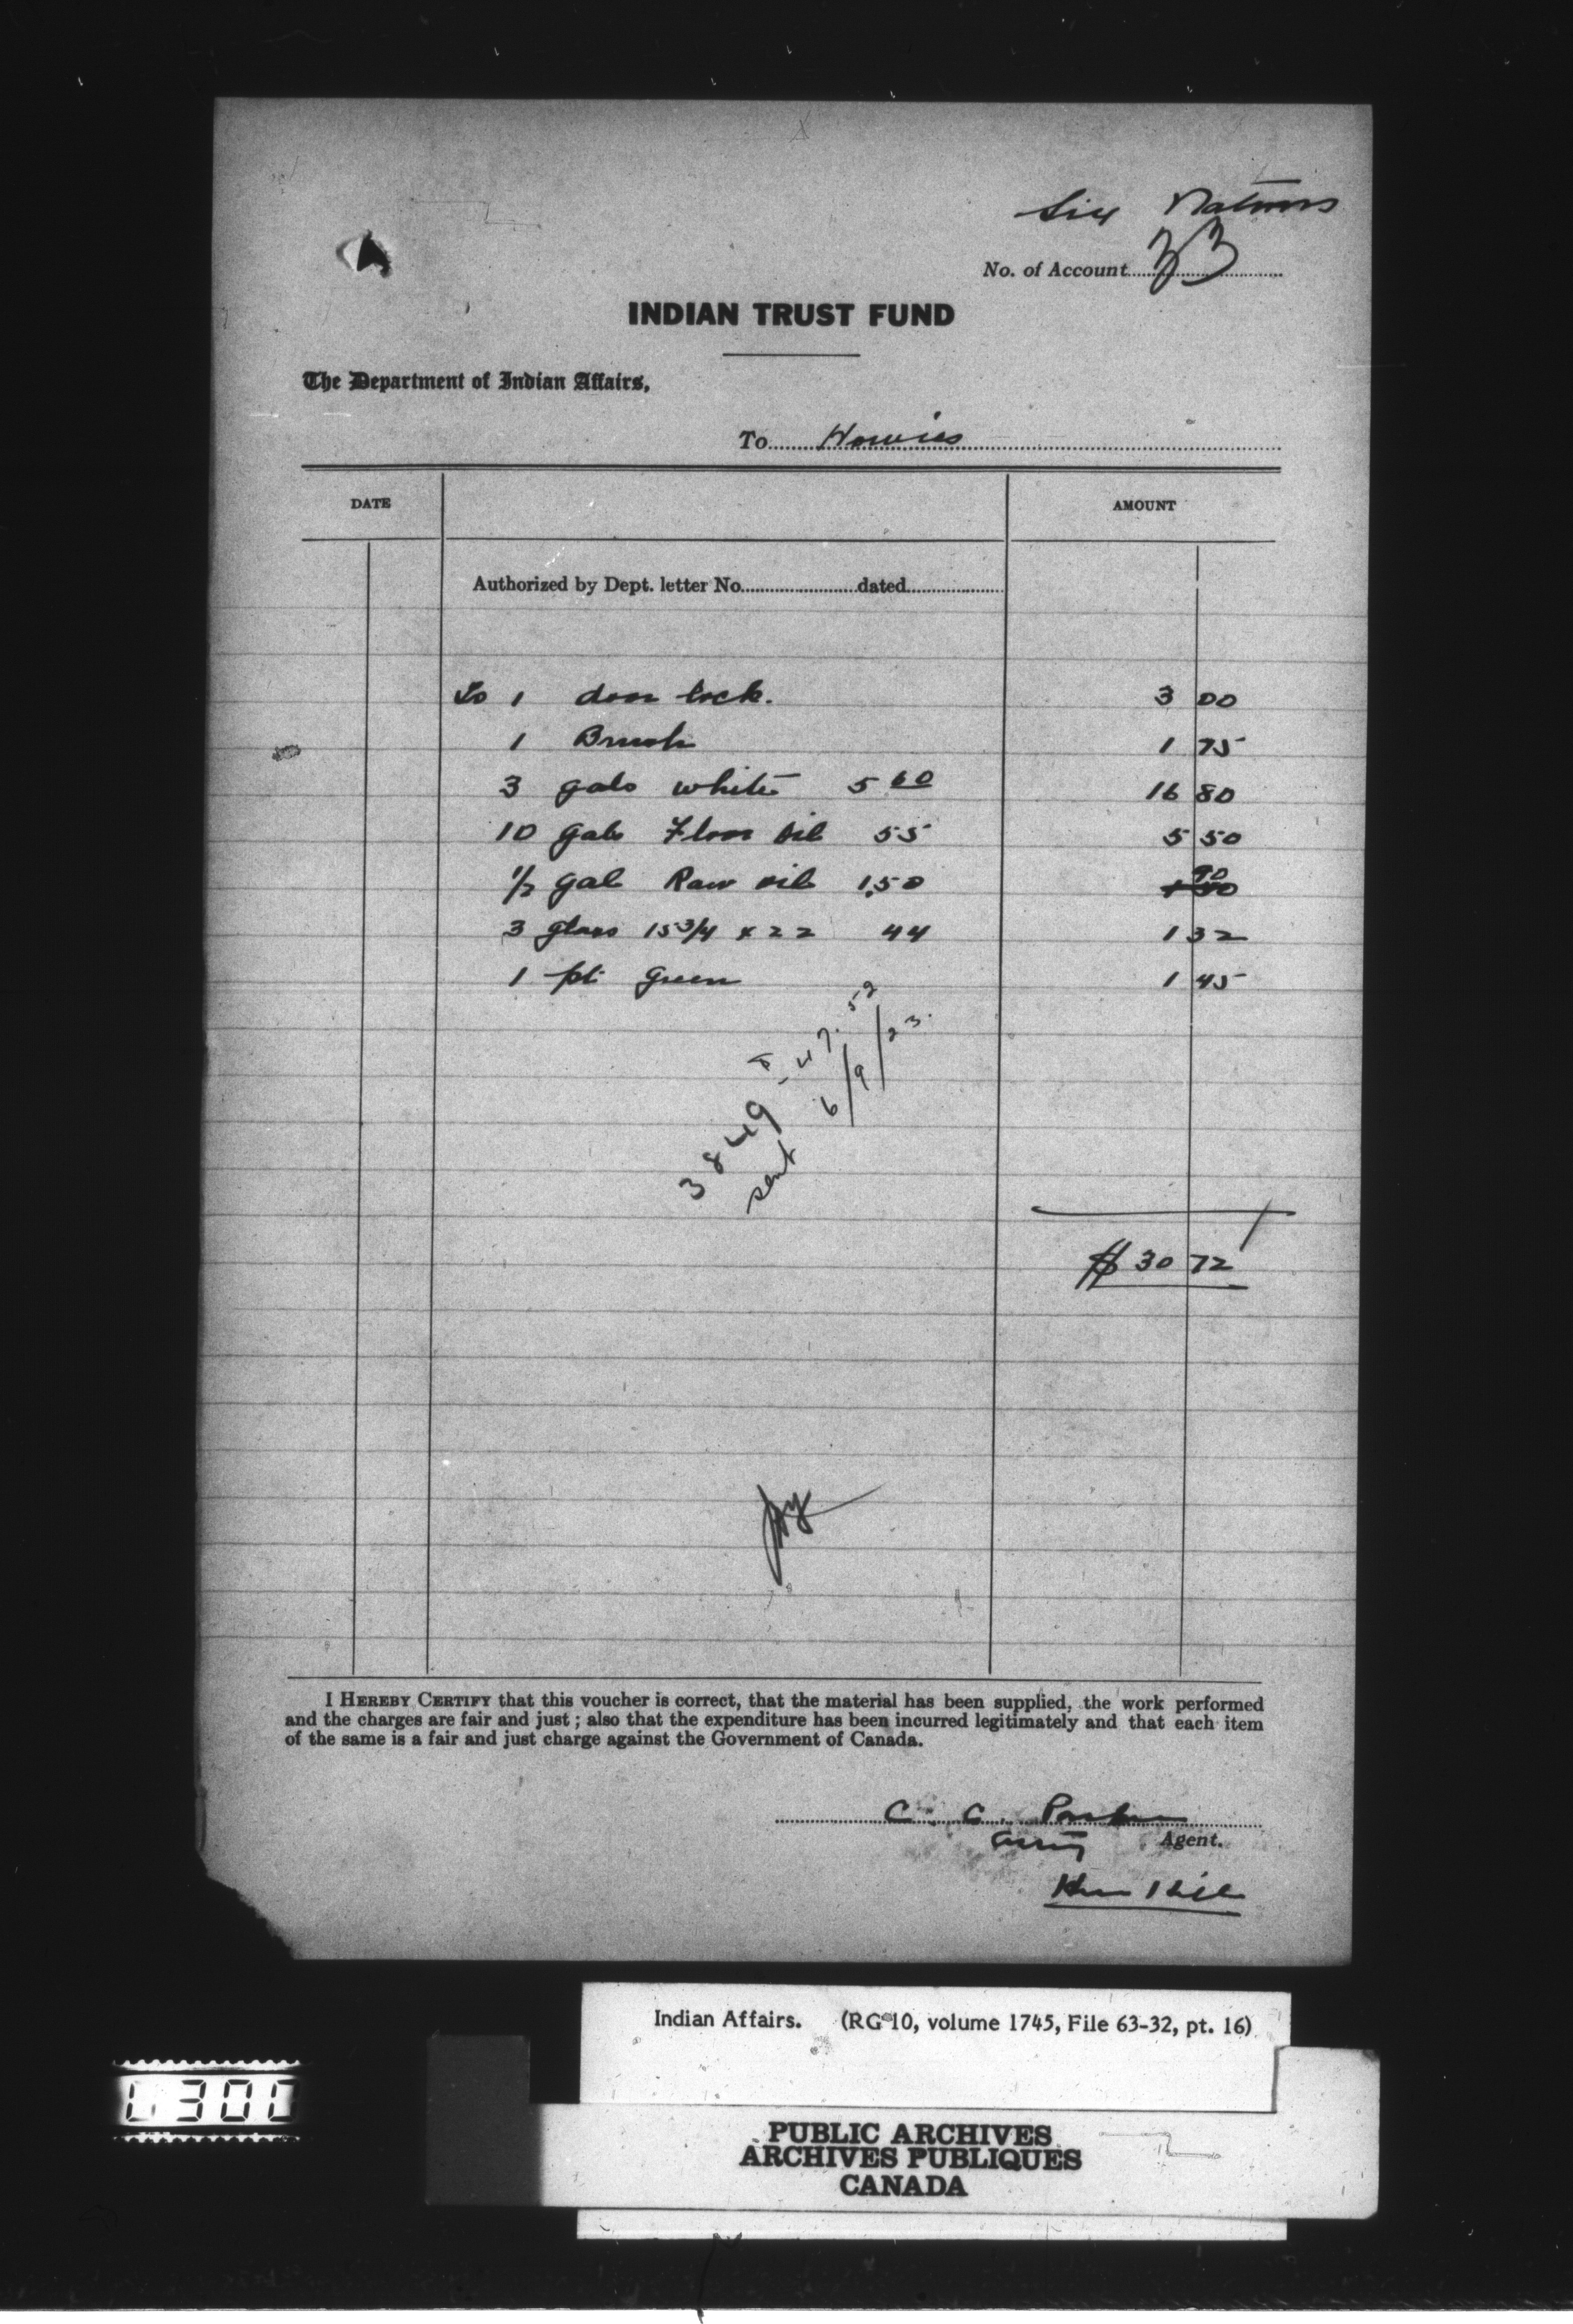 Six Nations
No. of Account 33
INDIAN TRUST FUND
The Department of Indian Affairs,
To Howies
DATE AMOUNT
Authorized by Dept. letter No. dated
To 1 door lock. 3 00
1 Brush 1 75
3 gals white 5 60 16 80
10 gals Floor Oil 55 5 50
1/2 gal Raw oil 1.50 90
3 glass 15 3/4 x 22 44 1 32
1 pt green 1 45
3849 - 47.52
sent 6/9/23.
$ 30 72
I HEREBY CERTIFY that this voucher is correct, that the material has been supplied, the work performed
and the charges are fair and just; also that the expenditure has been incurred legitimately and that each item
of the same is a fair and just charge against the Government of Canada.
C. C. Parker
Agent.
Indian Affairs. (RG 10, volume 1745, File 63-32, pt. 16)
L 300
PUBLIC ARCHIVES
ARCHIVES PUBLIQUES
CANADA